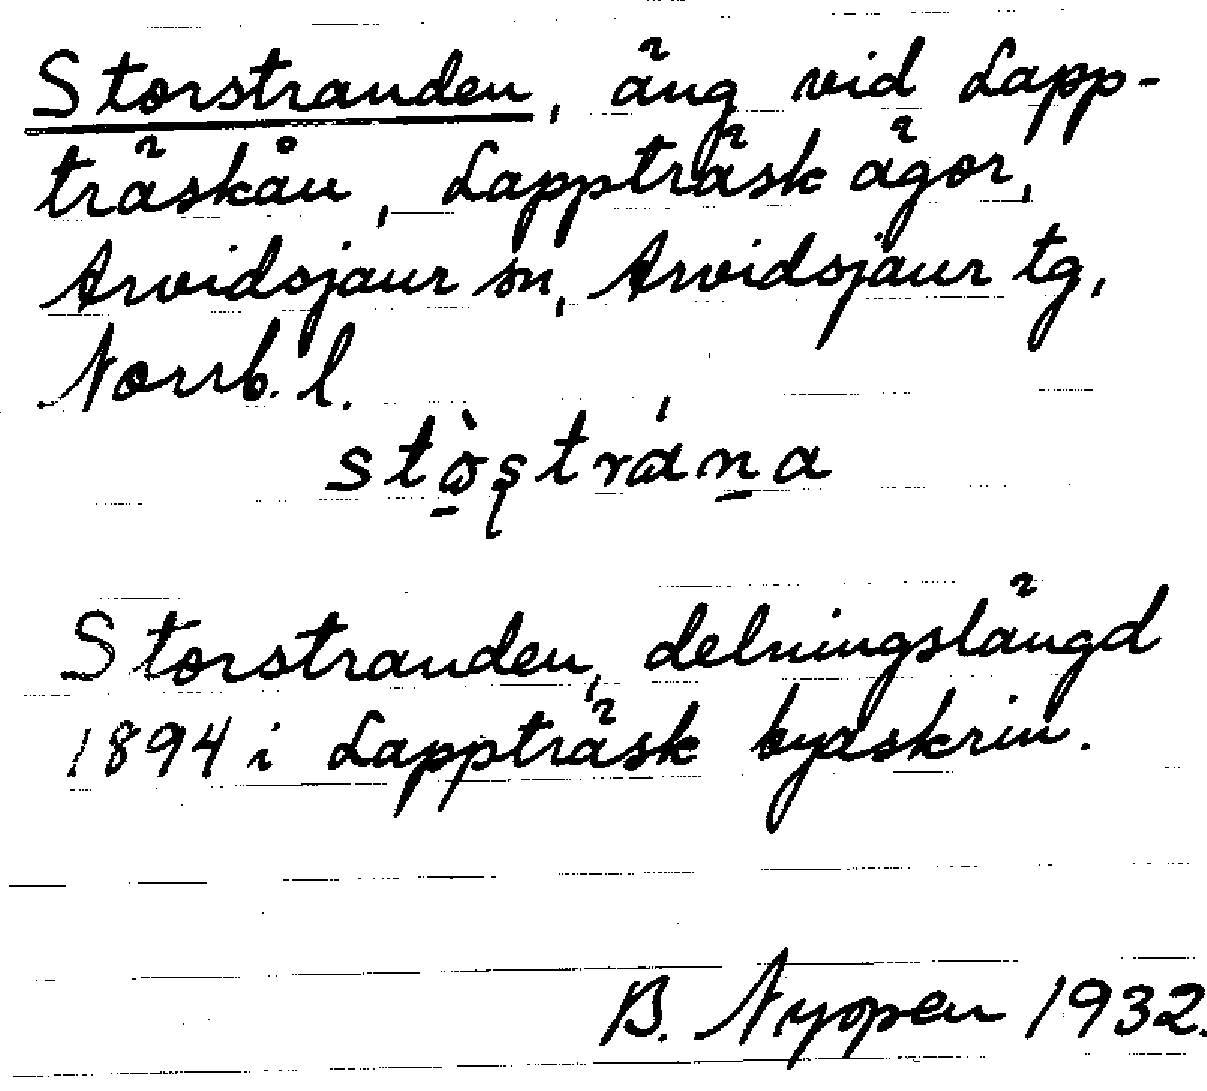 Storstranden, äng vid Lapp-
träskån, Lappträsk ägor,
Arvidsjaur sn, Arvidsjaur tg,
Norrb. l.
stò̠ʂtrána̠
Storstranden, delningslängd
1894 i Lappträsk byaskrin.
B. Nyopen 1932.